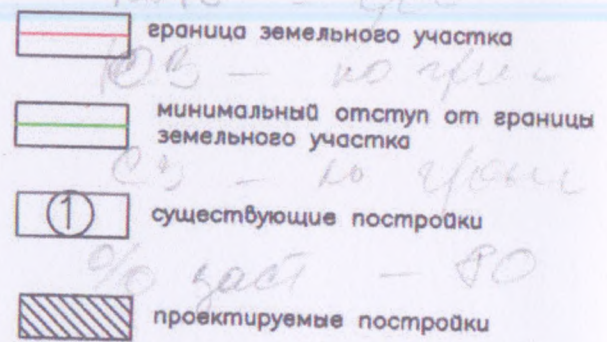 граница земельного участка
ЮВ — по
минимальный отступ от границы
земельного участка
СЗ — по
1 существующие постройки
% заст — 80
проектируемые постройки